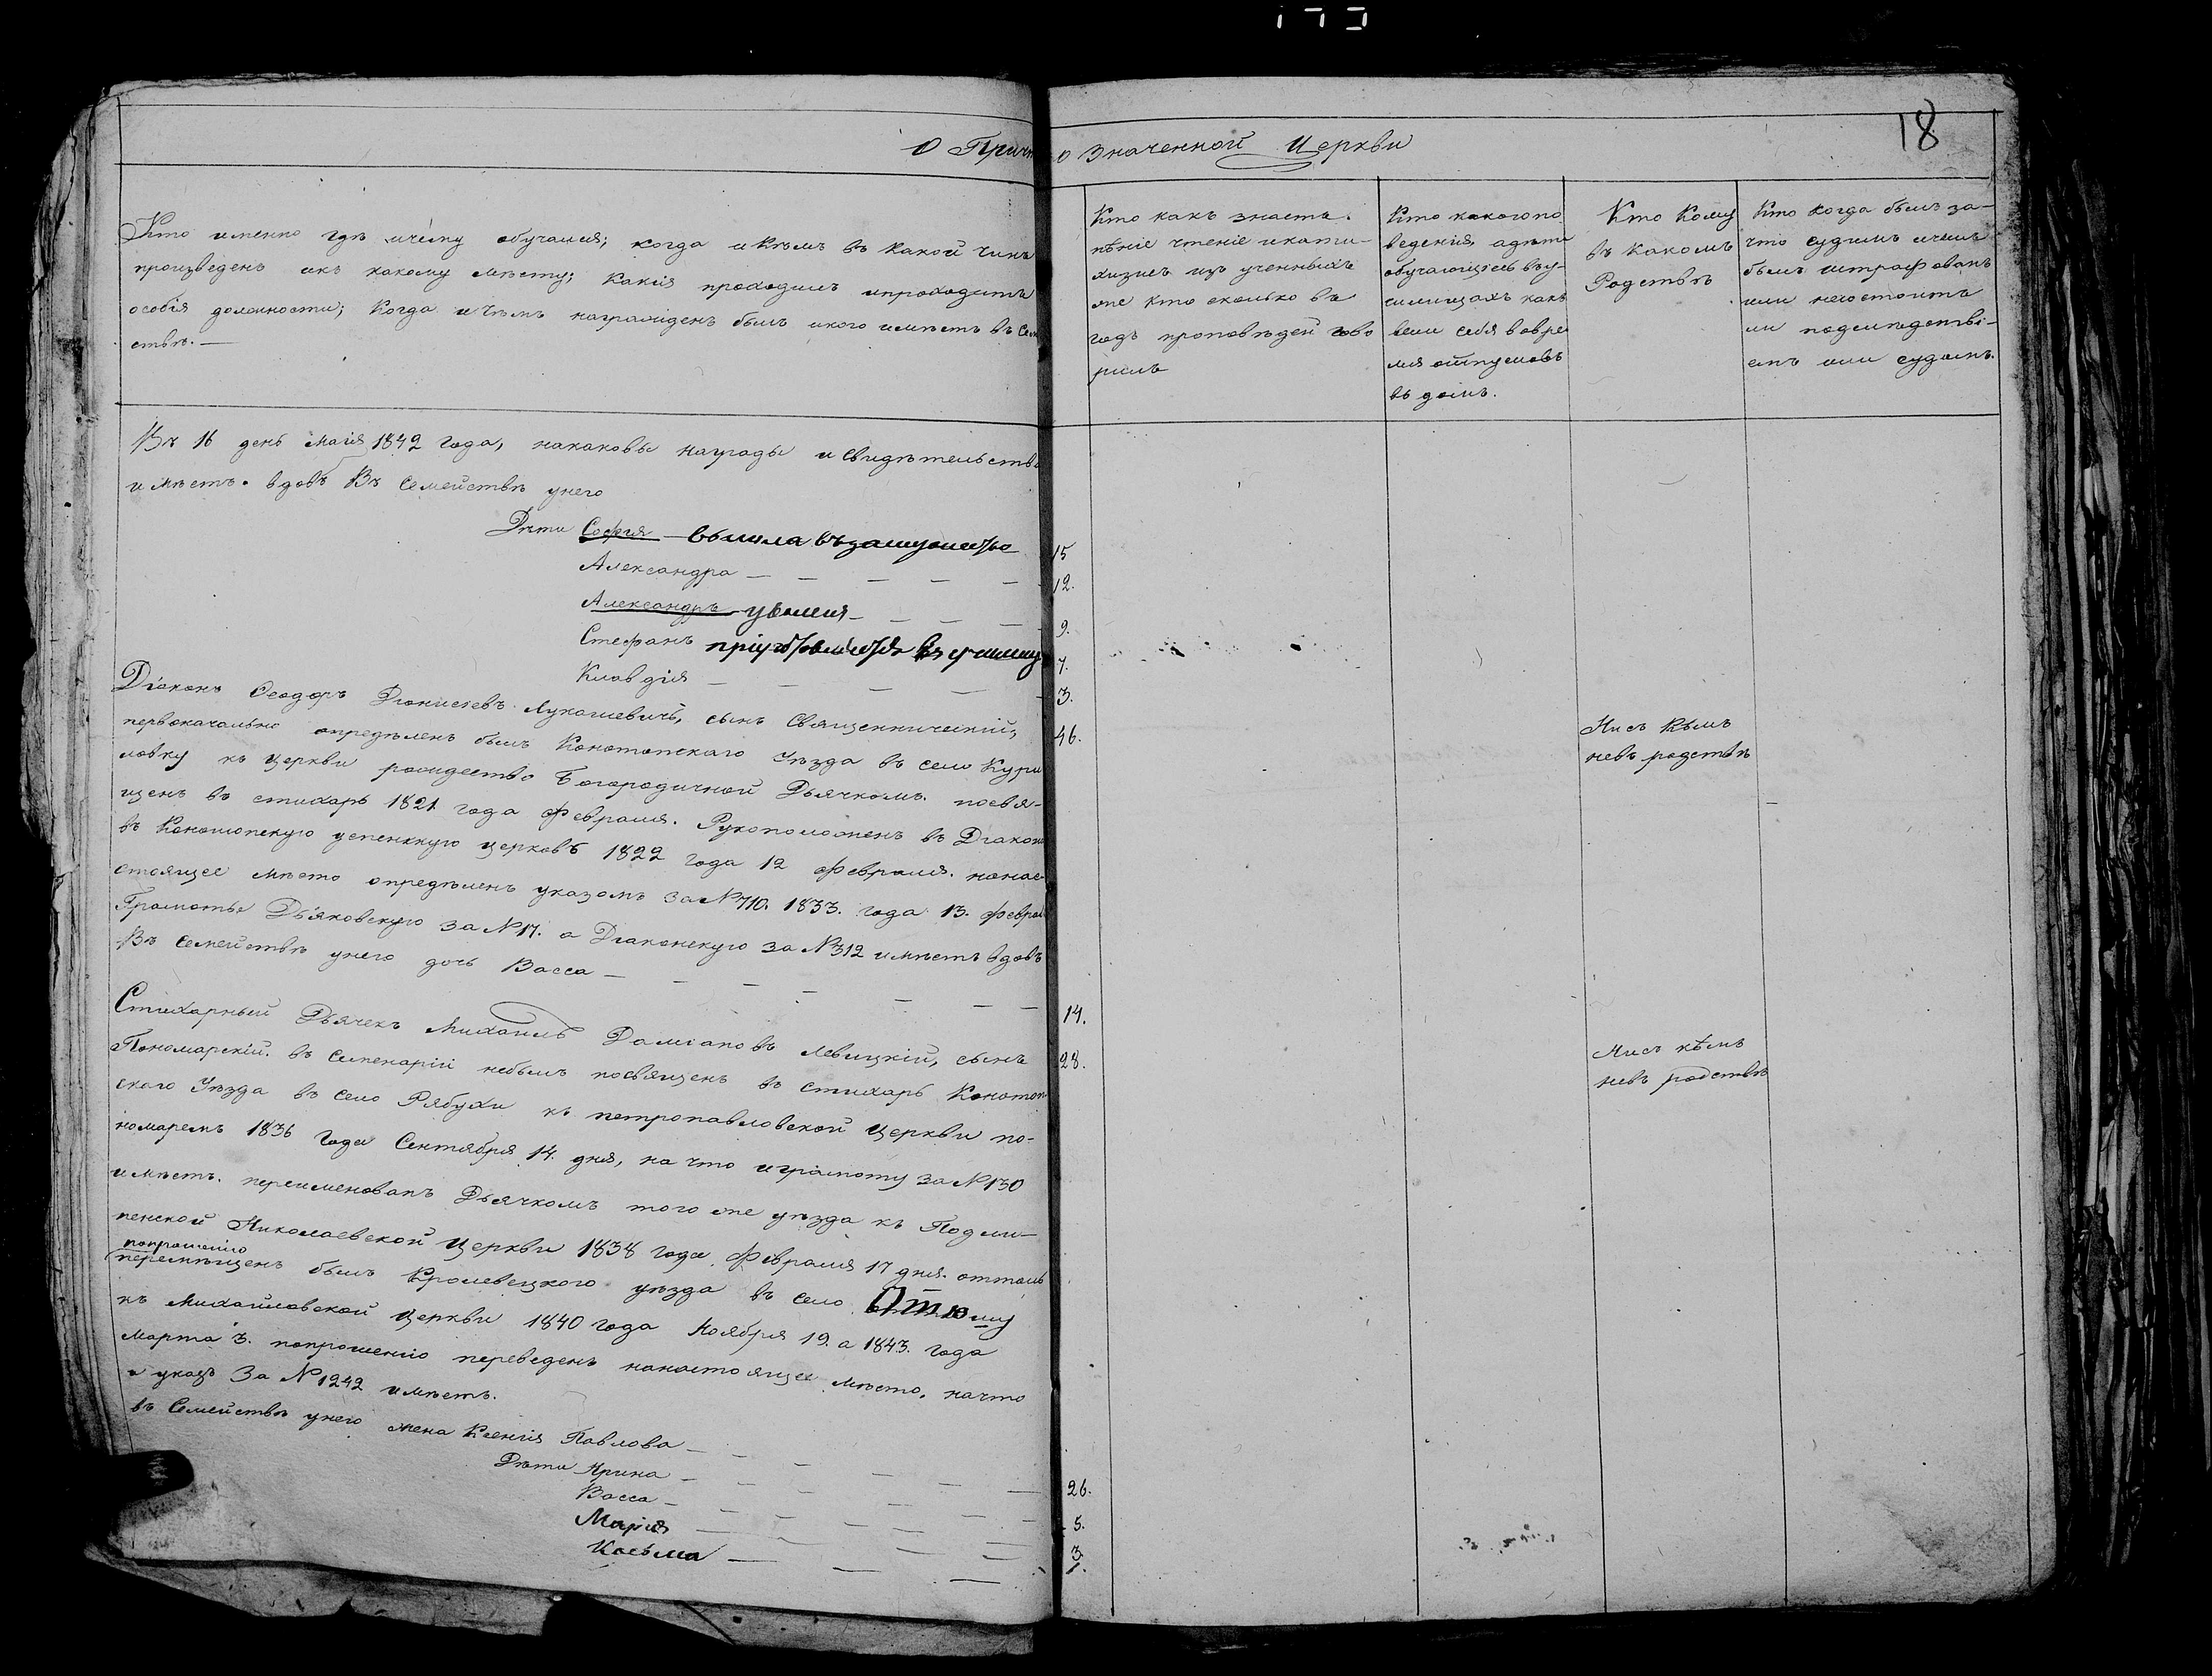 18
О Причт
о значенной Церкви
Кто именно гдѣ и чему обучался; когда и Кѣмъ въ какой чинъ
произведенъ и къ какому мѣсту; какія проходилъ и проходитъ
особія должности; когда и чѣмъ награжденъ былъ и кого имѣетъ въ Сем
ствѣ. —
Кто какъ знаетъ.
пѣніе чтеніе и кати-
хизисъ изъ ученныхъ
же кто сколько въ
годъ проповѣдей гово
рилъ
Кто какого по
веденія, а дѣти
обучающіесь въ у-
чилищахъ какъ
вели себя вовре
мя отпусковъ
въ домъ.
Кто Кому
въ какомъ
Родствѣ
Кто когда былъ за
что судимъ и чемъ
былъ штрафованъ
или не состоитъ
ли подслѣдстві-
емъ или судомъ.
Въ 16 день Маія 1842 года, накаковы награды и свидѣтельств
имѣетъ. вдовъ Въ Семействѣ унего
Дѣти София — вышла въ замужество 15
Александра — — — — — 12.
Александръ — уволися — — — — 9.
Стефанъ пріуготовляется въ училищу 7.
Клавдія — — — — — 3.
Діаконъ Феодоръ Діонисіевъ Лукашевичъ, сынъ Священническій, 46.
первоначально опредѣленъ былъ Конотопскаго Уѣзда въ село Кури
ловку къ церкви рождество Богородичной Дьячкомъ. посвя-
щенъ въ стихарь 1821 года февраля. Рукоположенъ въ Діакон
въ Конотопскую успенскую церковь 1822 года 12 февраля. нанас-
стоящее мѣсто опредѣленъ указомъ за № 710. 1833. года 13. феврал
Грамоты Дьяковскую за № 17. а Діаконскую за № 312 имѣетъ вдовъ
Въ семействѣ унего дочь Васса — — — — — — — 14.
Нисъ Кѣмъ
невъ родствѣ
Стихарный Дьячекъ Михаилъ Даміановъ Левицкій, сынъ 28.
Пономарскій. въ Семенаріи небылъ посвященъ въ стихарь Конотоп
скаго Уѣзда въ село Рябухи къ петропавловской церкви по-
номаремъ 1836 года Сентября 14. дня, на что играмоту за № 130
имѣетъ. переименованъ Дьячкомъ того же уѣзда къ Подли-
пенской Николаевской церкви 1838 года февраля 17 дня. оттоль
попрошенію
перемѣщенъ былъ Кролевецкого уѣзда въ село Отюшу
къ Михайловской церкви 1840 года Ноября 19. а 1843. года
Марта 3. попрошенію переведенъ нанастоящее мѣсто, начто
и указъ За № 1242 имѣетъ.
Нисъ кѣмъ
невъ родствѣ
въ Семействѣ унего жена Ксенія Павлова — — — — 26.
Дѣти Ирина — — — — — 5.
Васса — — — — — 3.
Марія — — — —
Косьма — — —